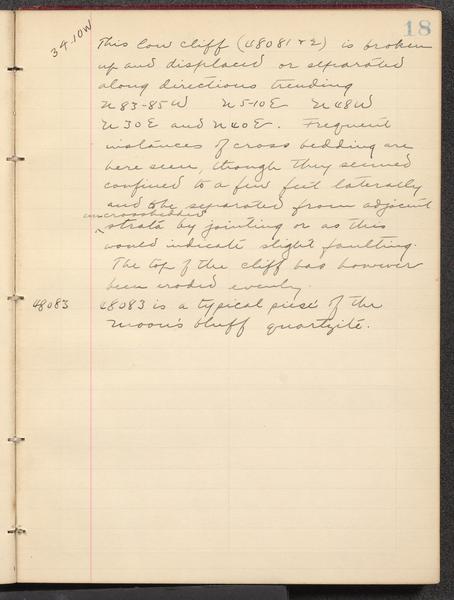 18
34.10W
This low cliff (48081 & 2) is broken
up and displaced or separated
along directions trending
N 83-85 W N 5-10 E N 48 W
N 30 E and N 40 E. Frequent
instances of cross bedding are
here seen, though they seemed
confined to a few feet laterally
and to be separated from adjacent
uncrossbedded
strata by jointing or as this
would indicate slight faulting.
The top of the cliff has however
been eroded evenly.
48083 48083 is a typical piese of the
Moon's bluff quartzite.